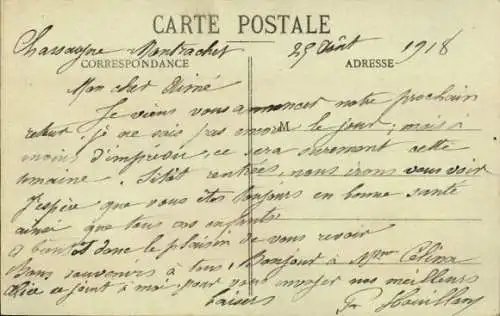 CARTE POSTALE
Chassagne Montrachet 25 Août 1918
CORRESPONDANCE ADRESSE
Mon cher Aimé
Je viens vous annoncer notre prochain
retour je ne sais pas encore le jour; mais à
M
moins d'imprévu, ce sera surement cette
semaine. Sitôt rentrées, nous irons vous voir
J'espère que vous êtes toujours en bonne santé
ainsi que tous vos enfants
A bientôt donc le plaisir de vous revoir
Bons souvenirs à tous, Bonjour à Mme Célina
Alice se joint à moi pour vous envoyer nos meilleurs
baisers